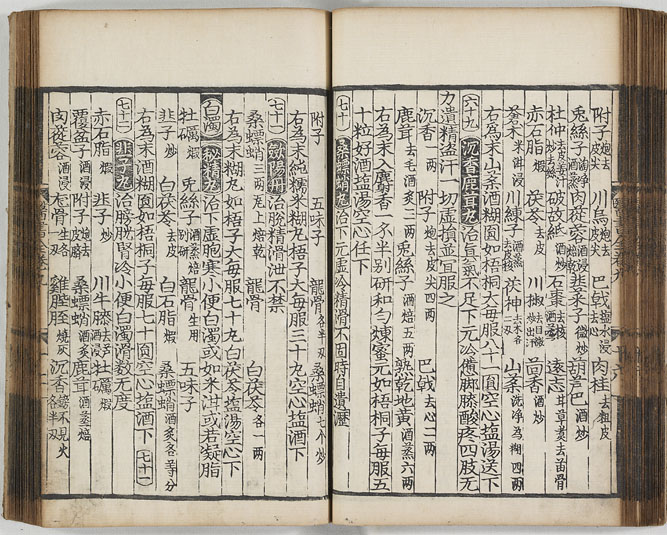 附子炮去皮尖 川烏炮去皮尖 巴戟塩水浸去心 肉桂去粗皮
兔絲子酒蒸 肉蓯蓉酒浸 韭菜子微炒 胡芦巴酒炒
杜仲 破故紙酒炒 石棗去核 遠志甘草煮去苗骨
赤石脂煆 茯苓去皮 川椒去目 茴香酒炒
蒼朮米泔浸 川練子酒蒸去皮核 茯神去木 山藥洗净為糊四兩
右為末山藥酒糊圓如梧桐大每服八十一圓空心塩湯送下
六十九 沉香鹿茸丸治真氣不足下元冷憊脚膝酸疼四肢无
力遺精盗汗一切虚損並宜服之
沉香一兩 附子炮去皮尖四兩 巴戟去心二兩
鹿茸去毛酒炙二兩 兔絲子酒焙五兩 熟乾地黄酒蒸六兩
右為末入麝香一分半别研和勻煉蜜元如梧桐子每服五
十粒好酒塩湯空心任下
七十 桑螵蛸丸治下元虚冷精滑不固時自遺瀝
附子 五味子 龍骨各半兩 桑螵蛸七个炒
右為末純糯米糊丸梧子大每服三十九空心塩酒下
七十一 治膀胱精滑泄不禁
桑螵蛸三兩 焙乾 龍骨 白茯苓各一兩
右為末糊丸如梧子大每服七十九白茯苓塩湯空心下
白濁 秘精丸治下虚胞寒小便白濁或如米泔或若凝脂
牡礪煆 兔絲子酒蒸焙别研 龍骨生用 五味子
韭子炒 白茯苓去皮 白石脂煆 桑螵蛸酒炙各等分
右為末酒糊圓如梧桐子每服七十圓空心塩酒下 七十一
七十二 韭子丸治膀胱腎冷小便白濁滑數无度
赤石脂煆 韭子炒 川牛膝去芦酒浸 牡礪煆
覆盆子酒浸 附子炮去皮臍 桑螵蛸酒炙 鹿茸酒蒸焙
肉蓯蓉酒浸 龙骨生 雞膍胵燒灰 沉香鎊不見火各半兩